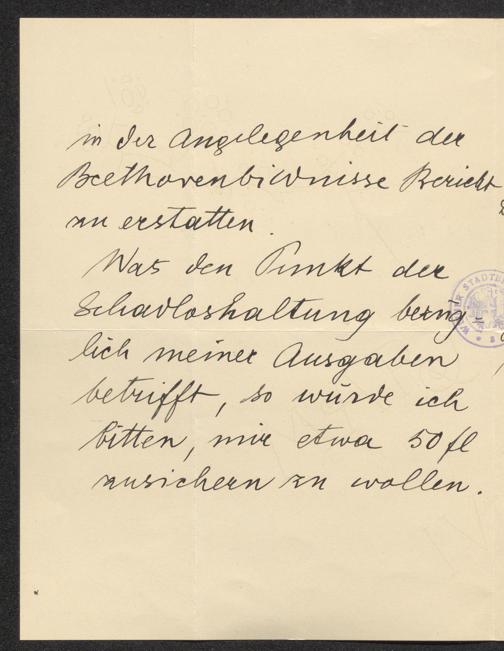 in der Angelegenheit der
Beethovenbildnisse Bericht
zu erstatten.
Was den Punkt der
Schadloshaltung bezüg-
lich meiner Ausgaben
betrifft, so würde ich
bitten, mir etwa 50 fl
zusichern zu wollen.